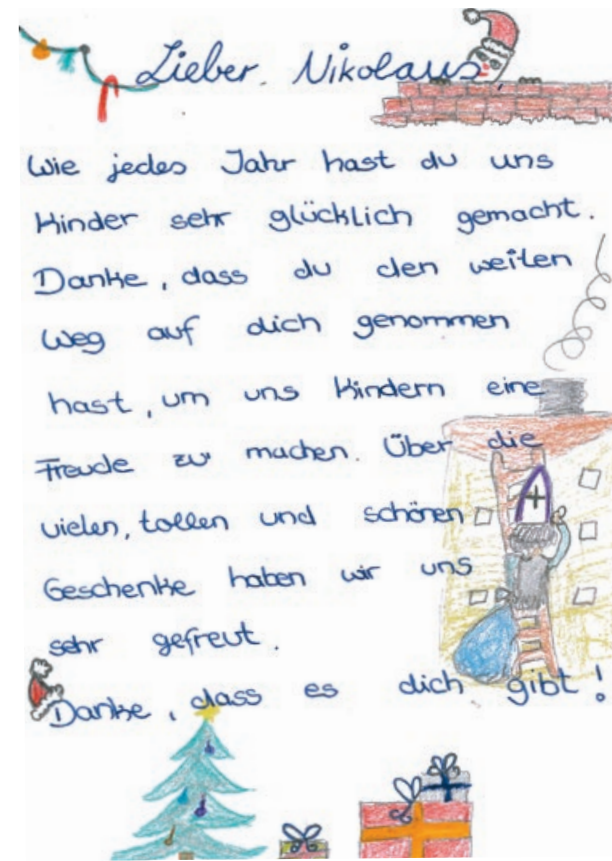 Lieber Nikolaus,
Wie jedes Jahr hast du uns
Kinder sehr glücklich gemacht.
Danke, dass du den weiten
Weg auf dich genommen
hast, um uns Kindern eine
Freude zu machen. Über die
vielen, tollen und schönen
Geschenke haben wir uns
sehr gefreut.
Danke, dass es dich gibt!